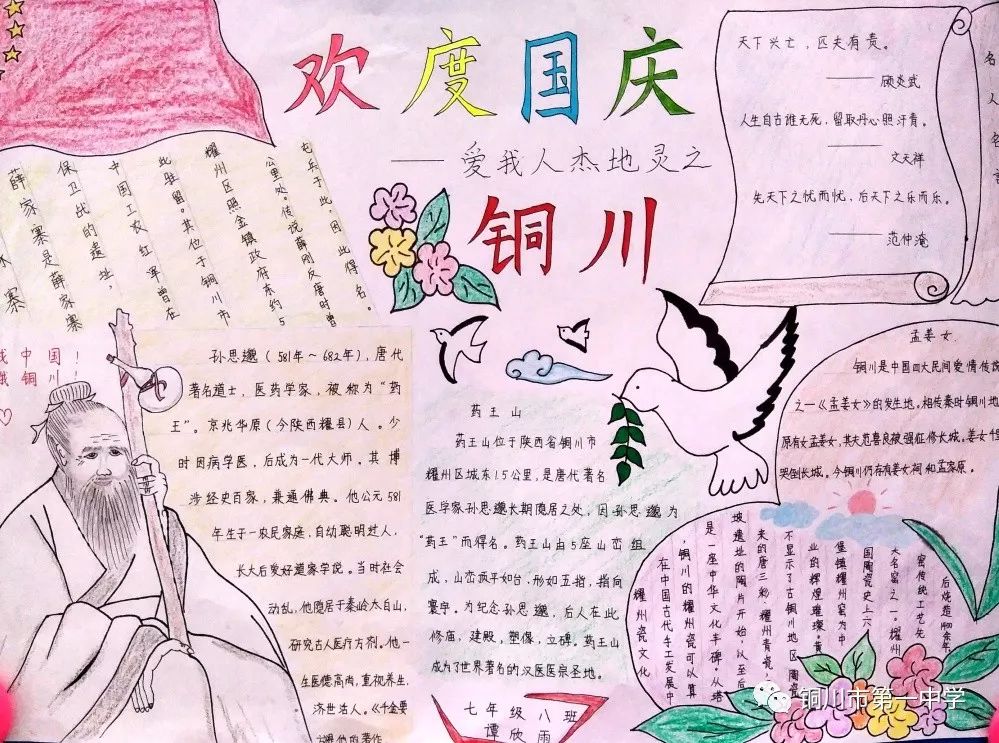 欢度国庆
——爱我人杰地灵之
铜川
天下兴亡，匹夫有责。
——顾炎武
人生自古谁无死，留取丹心照汗青。
——文天祥
先天下之忧而忧，后天下之乐而乐。
——范仲淹
名人名言
薛家寨
薛家寨是薛家寨
保卫战的遗址，
中国工农红军曾在
此驻留。其位于铜川市
耀州区照金镇政府东约5
公里处。传说薛刚反唐时曾
屯兵于此，因此得名。
我中国！
我铜川！
孙思邈（581年～682年），唐代
著名道士，医药学家，被称为“药
王”。京兆华原（今陕西耀县）人。少
时因病学医，后成为一代大师。其博
涉经史百家，兼通佛典。他公元581
年生于一农民家庭，自幼聪明过人，
长大后爱好道家学说。当时社会
动乱，他隐居于秦岭太白山，
研究古人医疗方剂。他一
生医德高尚，重视养生，
济世活人。《千金要
药王山
药王山位于陕西省铜川市
耀州区城东1.5公里，是唐代著名
医学家孙思邈长期隐居之处，因孙思邈为
“药王”而得名。药王山由5座山峦组
成，山峦顶平如台，形如五指，指向
寰宇。为纪念孙思邈，后人在此
修庙，建殿，塑像，立碑。药王山
成为了世界著名的汉医医宗圣地。
孟姜女
铜川是中国四大民间爱情传说
之一《孟姜女》的发生地。相传秦时铜川地
原有女孟姜女，其夫范喜良被强征修长城。姜女
哭倒长城。今铜川仍存有姜女祠和孟家原。
耀州瓷文化
在中国古代手工发展中
，铜川的耀州瓷可以算
是一座中华文化丰碑。从塔
坡遗址的陶片开始以至后
来的唐三彩，耀州青瓷
不显示了古铜川地区陶瓷
业的辉煌璀璨。黄
堡镇耀州窑为中
国陶瓷史上六
大名窑之一。耀州
窑传统工艺先
后烧造1400余年。
七年级八班
谭欣雨
铜川市第一中学